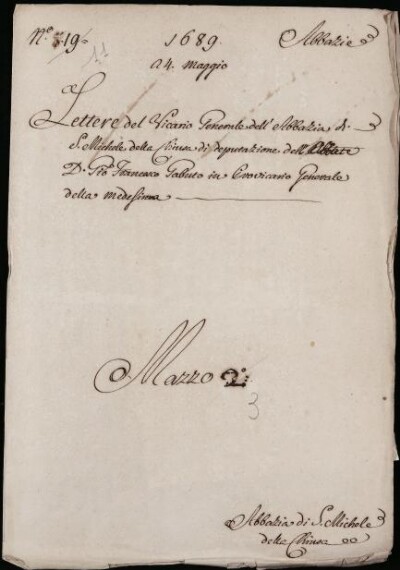 N.º 19
1689 Abbazie
24. Maggio
Lettere del Vicario Generale dell' Abbazia di
S. Michele della Chiusa di deputazione dell' Abbate
D. Pio Francesco Gabuto in Provicario Generale
della medesima
Mazzo 2.º
3
Abbazia di S. Michele
della Chiusa